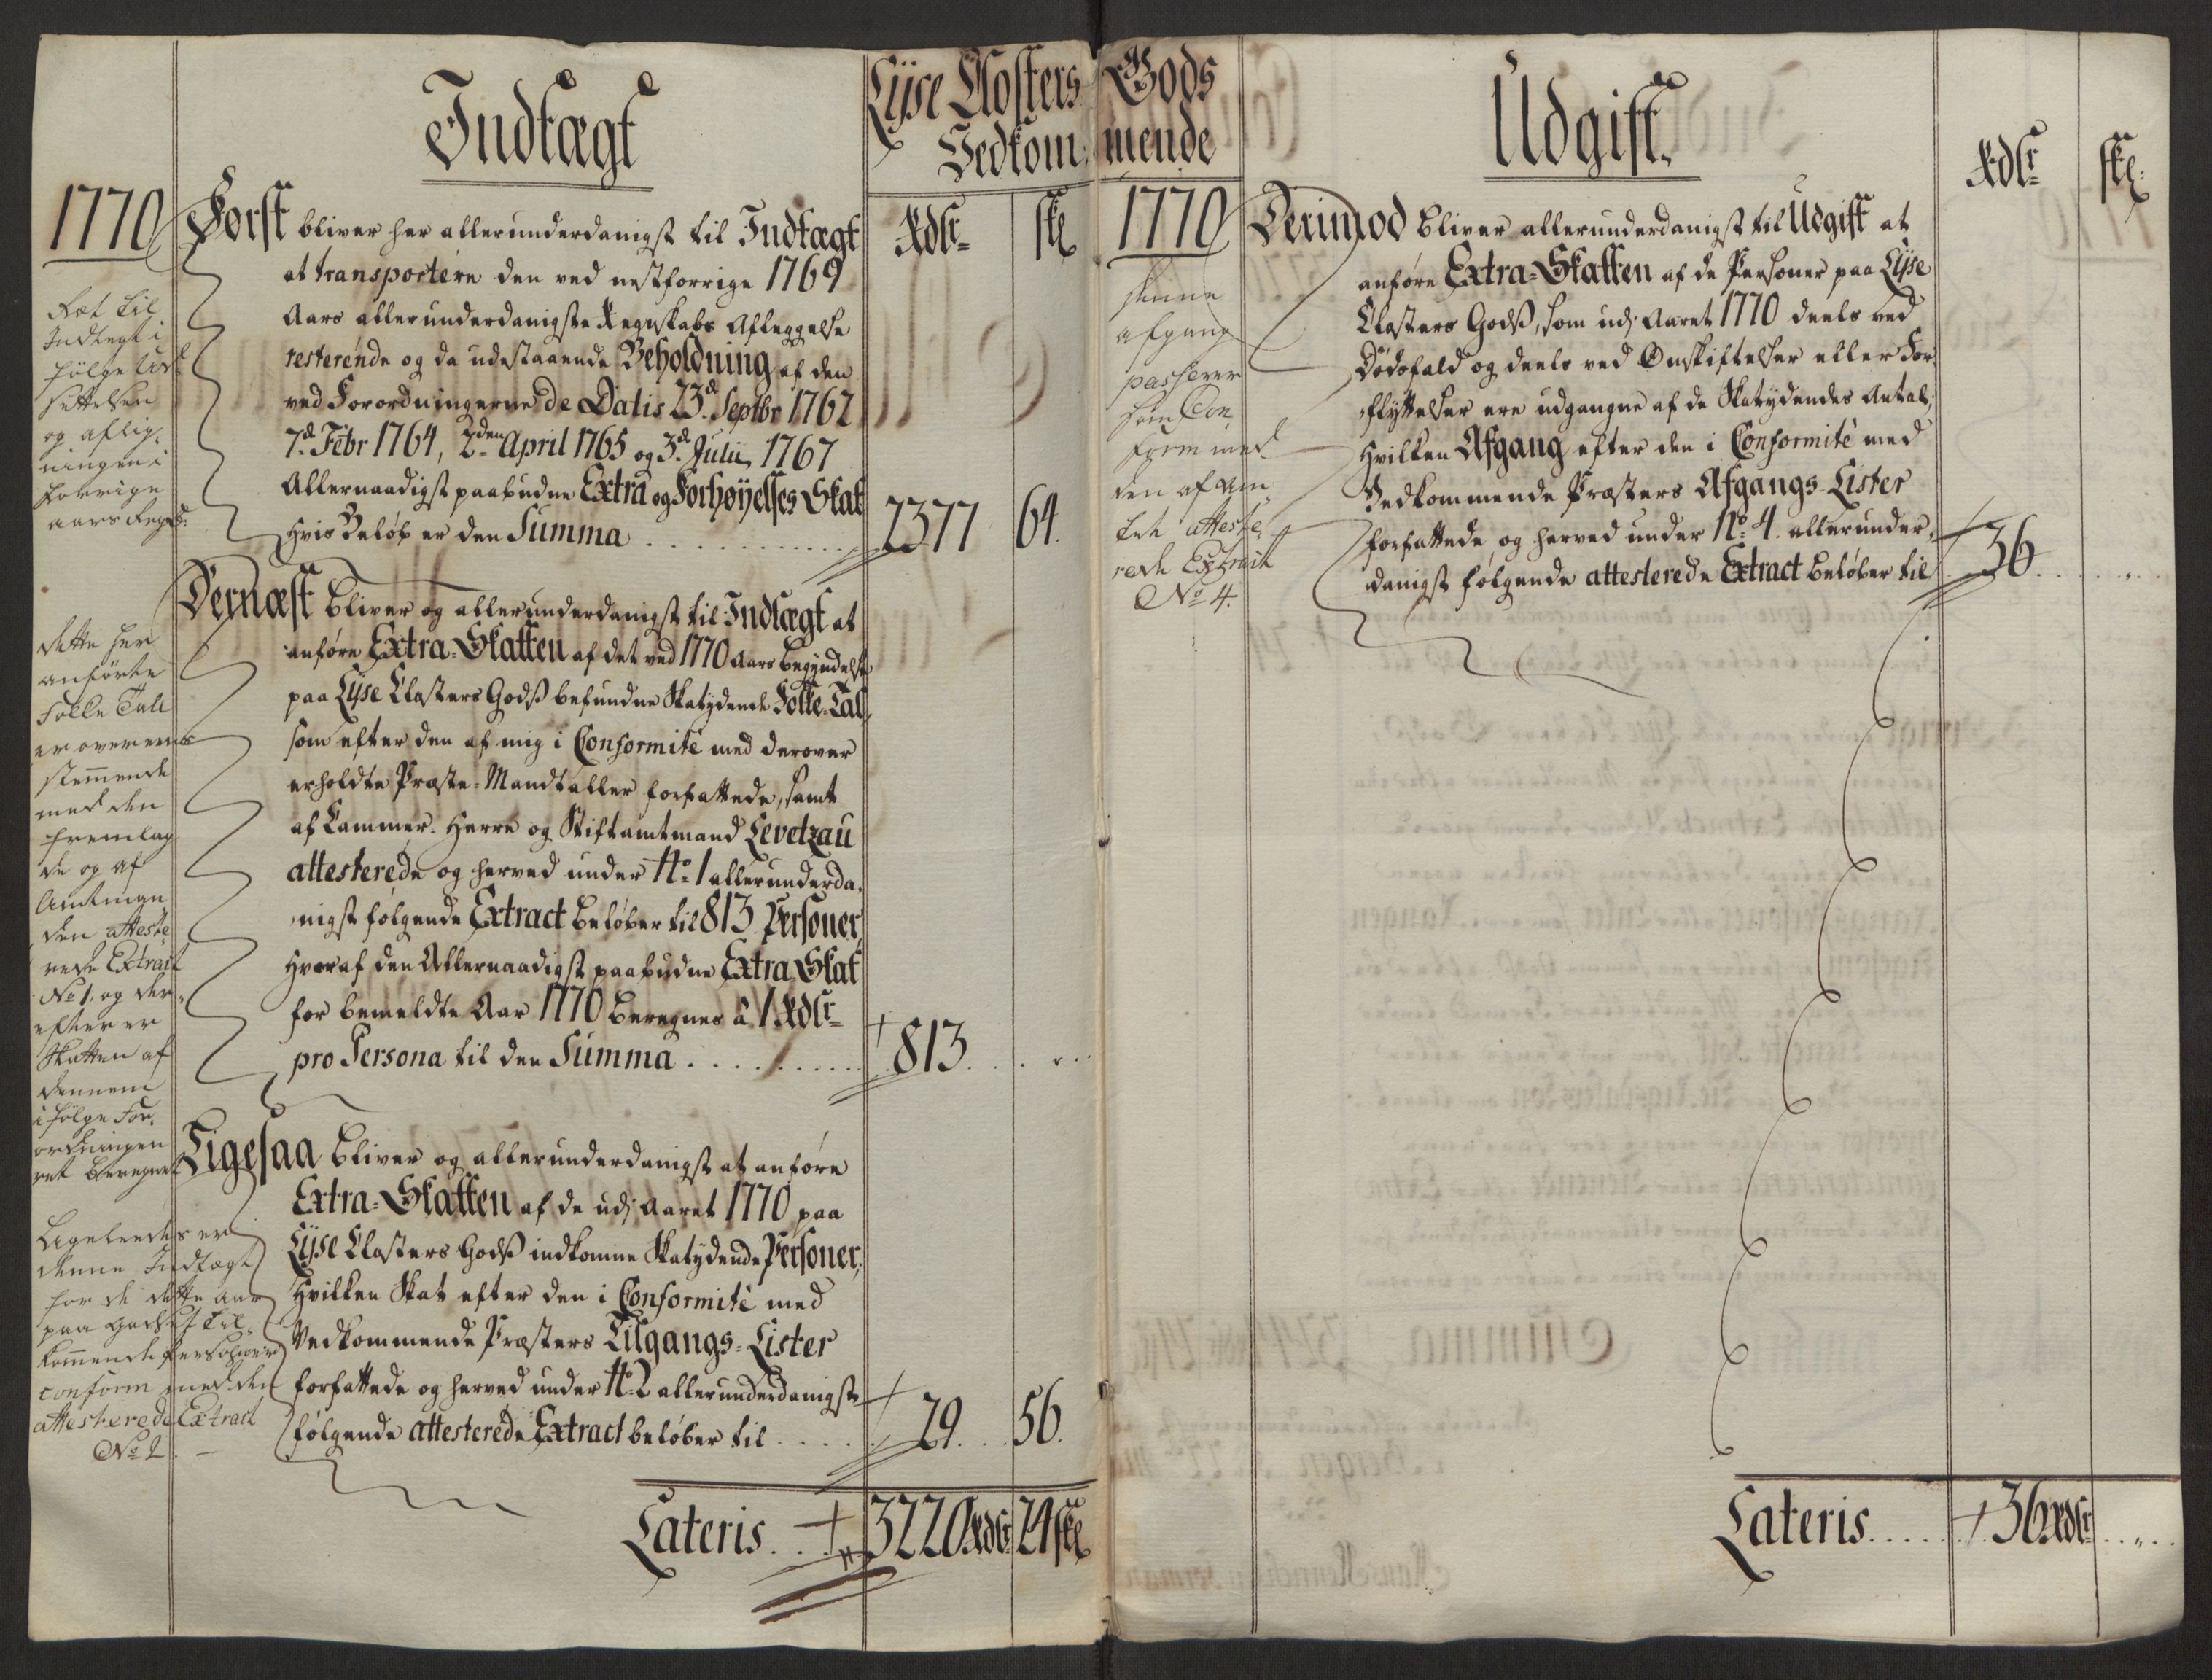 Indtægt
Lyse Closters Gods
Vedkommende
1770
Rdlr
ſkl
Først bliver her allerunderdanigst til Indtægt
at transportere den ved nestforrige 1769
Aars allerunderdanigste Regnskabs Afleggelse
resterende og da udestaaende Beholdning af den
ved Forordningerne de Datis 23d. Septbr 1762
7d. Febr 1764, 2den April 1765 og 3d. Julii 1767
Allernaadigst paabudne Extra og Forhøyelses Skat
hvis Beløb er den Summa . . . . . . . . . . 2377 64.
Ræt til
Indtegt i
følge Ud-
settelsen
og aflig-
ningen i
forrige
aars Regsk:
Dernæst bliver og allerunderdanigst til Indtægt at
anføre Extra-Skatten af det ved 1770 Aars begyndelse
paa Lyse Closters Godß befundne Skatydende Folke-Tal,
som efter den af mig i Conformité med derover
erholdte Præste-Mandtaller forfattede, samt
af Kammer-Herre og Stiftamtmand Levetzau
attesterede og herved under No. 1 allerunderda-
nigst følgende Extract beløber til 813 Personer,
hvoraf den Allernaadigst paabudne Extra Skat
for bemeldte Aar 1770 beregnes â 1 Rdlr
pro Persona til den Summa . . . . . . . . . 813. . . „ . .
dette her
anførte
Folke Tall
er overeens
stemmende
med den
fremlag
de og af
Amtman
den atteste
rede Extrait
No 1. og der-
efter er
Skatten af
dennem
i følge For-
ordningen
ret beregnet
Ligesaa bliver og allerunderdanigst at anføre
Extra-Skatten af de udj Aaret 1770 paa
Lyse Closters Godß indkomne Skatydende Personer,
hvilken Skat efter den i Conformité med
Vedkommende Præsters Tilgangs-Lister
forfattede og herved under No. 2 allerunderdanigst
følgende attesterede Extract beløber til . . . . . 29. . . 56.
Ligeledes er
denne Indtægt
for de dette Aar
paa Godset til-
kommende Personer
conform med den
attesterede Extract
No 2. –
Lateris . . 3220 Rdlr 24 ſkl
Udgift.
Rdlr
ſkl.
1770
Derimod bliver allerunderdanigst til Udgift at
anføre Extra-Skatten af de Personer paa Lyse
Closters Godß, som udj Aaret 1770 deels ved
Dødsfald og deels ved Omskiftelser eller For-
flyttelser ere udgangne af de Skatydendes Antal;
hvilken Afgang efter den i Conformité med
Vedkommende Præsters Afgangs-Lister
forfattede og herved under No. 4. allerunder-
danigst følgende attesterede Extract beløber til 36. . . . „ . .
denne
afgang
passerer
som Con
form med
den af Am
tet atteste
rede Extrait
No 4.
Lateris . . . . . 36 Rdlr . . „ . .